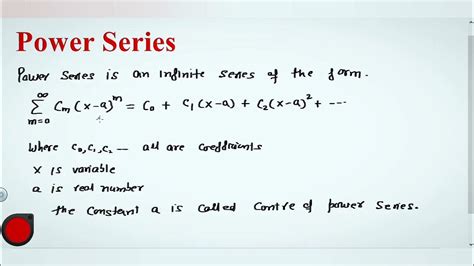 Power Series
Power Series is an infinite series of the form.
∞ ∑ m=0 Cₘ (x-a)ᵐ = C₀ + C₁ (x-a) + C₂ (x-a)² + ---
Where C₀, C₁, C₂ --- all are coefficients
X is variable
a is real number
the constant a is called Centre of power Series.